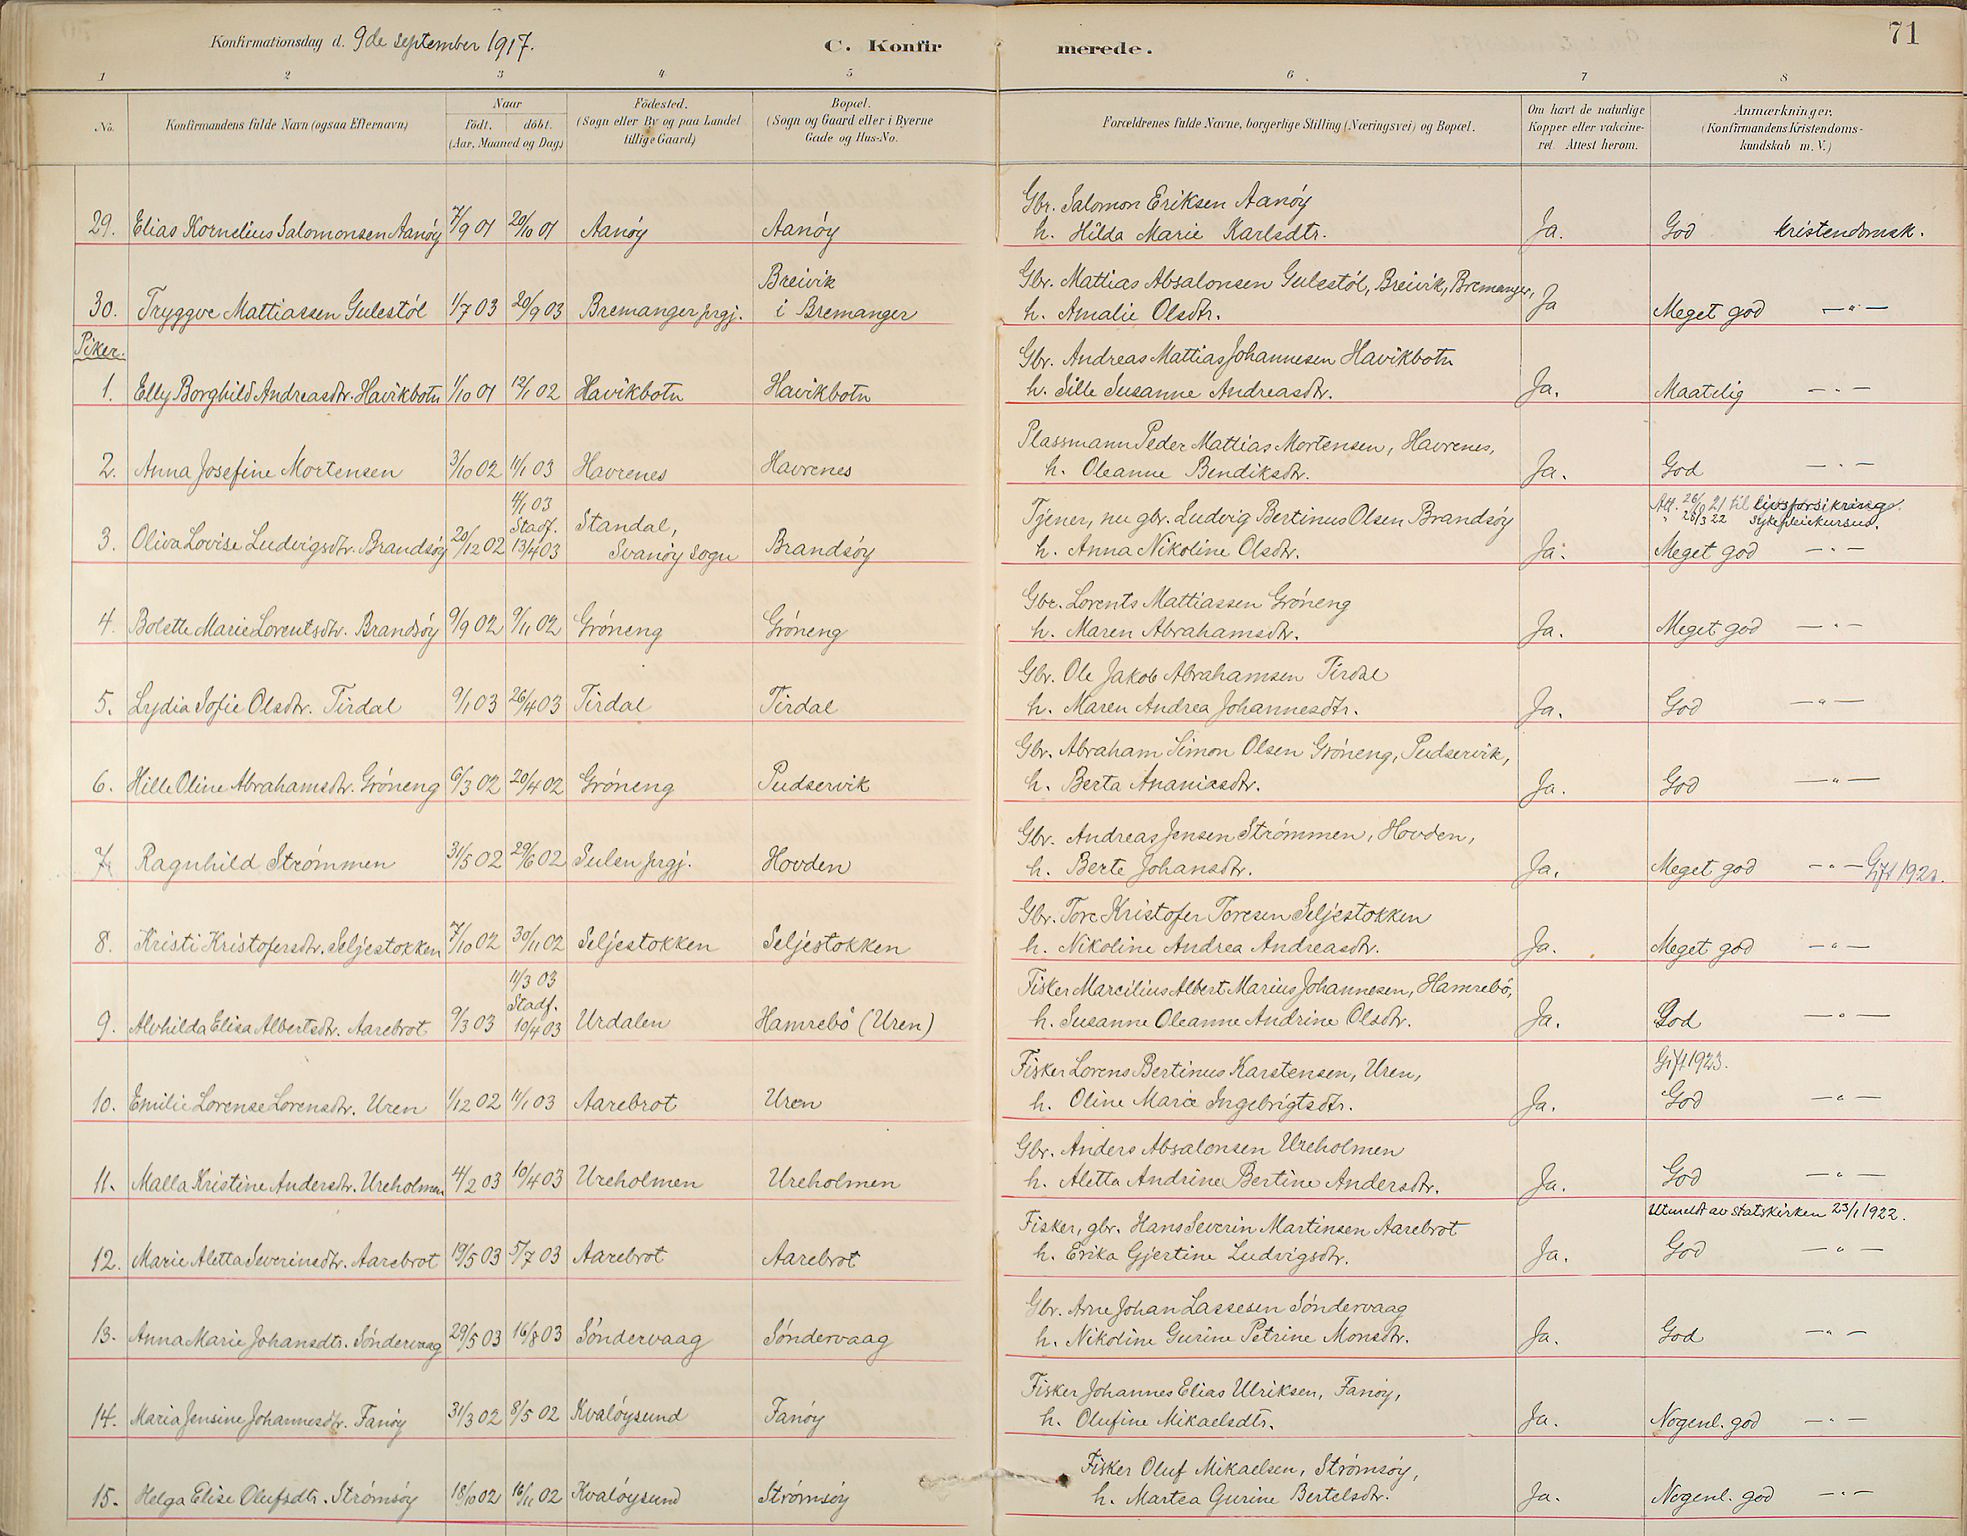 Konfirmationsdag d. 9de september 1917.
C. Konfirmerede.
71
1 2 3 4 5 6 7 8
No. Konfirmandens fulde Navn (ogsaa Efternavn) Naar født, døbt. (Aar, Maaned og Dag) Fødested. (Sogn eller By og paa Landet tillige Gaard) Bopæl. (Sogn og Gaard eller i Byerne Gade og Hus-No. Forældrenes fulde Navne, borgerlige Stilling (Næringsvei) og Bopæl. Om havt de naturlige Kopper eller vakcineret. Attest herom. Anmærkninger. (Konfirmandens Kristendomskundskab m. V.)
Gbr. Salomon Eriksen Aanöy
29. Elias Kornelius Salomonsen Aanöy 7/9 01 20/10 01 Aanöy Aanöy h. Hilda Marie Karlsdtr. Ja. God kristendomsk.
Breivik Gbr. Mattias Absalonsen Gulestöl, Breivik, Bremanger,
30. Tryggve Mattiassen Gulestöl 1/7 03 20/9 03 Bremanger prgj. i Bremanger h. Amalie Olsdtr. Ja Meget god —"—
Piker.
Gbr. Andreas Mattias Johannesen Havikbotn
1. Elly Borghild Andreasdtr. Havikbotn 1/10 01 12/1 02 Havikbotn Havikbotn h. Sille Susanne Andreasdtr. Ja. Maatelig —"—
Plassmann Peder Mattias Mortensen, Havrenes,
2. Anna Josefine Mortensen 3/10 02 11/1 03 Havrenes Havrenes h. Oleanne Bendiksdtr. Ja. God —"—
4/1 03 Att. 26/10 21 til livsforsikring.
Stadf. Standal, Tjener, nu gbr. Ludvig Bertinus Olsen Brandsöy " 28/3 22 sykepleiekursus.
3. Oliva Lovise Ludvigsdtr. Brandsöy 20/12 02 13/4 03 Svanöy sogn Brandsöy h. Anna Nikoline Olsdtr. Ja. Meget god —"—
Gbr. Lorents Mattiassen Gröneng
4. Bolette Marie Lorentsdtr. Brandsöy 9/9 02 9/11 02 Gröneng Gröneng h. Maren Abrahamsdtr. Ja. Meget god —"—
Gbr. Ole Jakob Abrahamsen Tirdal
5. Lydia Sofie Olsdtr. Tirdal 9/1 03 26/4 03 Tirdal Tirdal h. Maren Andrea Johannesdtr. Ja. God —"—
Gbr. Abraham Simon Olsen Gröneng, Pudservik,
6. Hille Oline Abrahamsdtr. Gröneng 6/3 02 20/4 02 Gröneng Pudservik h. Berta Ananiasdtr. Ja. God —"—
Gbr. Andreas Jensen Strömmen, Hovden,
7. Ragnhild Strömmen 31/5 02 29/6 02 Sulen prgj. Hovden h. Berte Johansdtr. Ja. Meget god —"—
Gbr. Tore Kristofer Toresen Seljestokken
8. Kristi Kristofersdtr. Seljestokken 7/10 02 30/11 02 Seljestokken Seljestokken h. Nikoline Andrea Andreasdtr. Ja. Meget god —"—
11/3 03
Stadf. Fisker Marcilius Albert Marius Johannesen, Hamrebö,
9. Alvhilda Elisa Albertsdtr. Aarebrot 9/3 03 10/4 03 Urdalen Hamrebö (Uren) h. Susanne Oleanne Andrine Olsdtr. Ja. God —"—
Fisker Lorens Bertinus Karstensen, Uren, Gift 1923.
10. Emilie Lorense Lorensdtr. Uren 1/12 02 11/1 03 Aarebrot Uren h. Oline Marie Ingebrigtsdtr. Ja. God —"—
Gbr. Anders Absalonsen Ureholmen
11. Malla Kristine Andersdtr. Ureholmen 4/2 03 10/4 03 Ureholmen Ureholmen h. Aletta Andrine Bertine Andersdtr. Ja. God —"—
Fisker, gbr. Hans Severin Martinsen Aarebrot Utmeldt av statskirken 23/1 1922.
12. Marie Aletta Severinsdtr. Aarebrot 19/5 03 5/7 03 Aarebrot Aarebrot h. Erika Gjertine Ludvigsdtr. Ja. God —"—
Gbr. Arne Johan Lassesen Söndervaag
13. Anna Marie Johansdtr. Söndervaag 29/5 03 16/8 03 Söndervaag Söndervaag h. Nikoline Gurine Petrine Monsdtr. Ja. God —"—
Fisker Johannes Elias Ulriksen, Fanöy,
14. Maria Jensine Johannesdtr. Fanöy 31/3 02 8/5 02 Kvalöysund Fanöy h. Olufine Mikaelsdtr. Ja. Nogenl. god —"—
Fisker Oluf Mikaelsen, Strömsöy,
15. Helga Elise Olufsdtr. Strömsöy 18/10 02 16/11 02 Kvalöysund Strömsöy h. Martea Gurine Bertelsdtr. Ja. Nogenl. god —"—